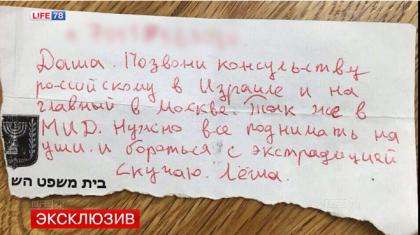 LIFE 78
Даша. Позвони консульству
российскому в Израиле и на
главный в Москве. Так же в
МИД. Нужно все поднимать на
уши и бороться с экстрадицией
Скучаю. Лёша.
בית משפט הש
ЭКСКЛЮЗИВ